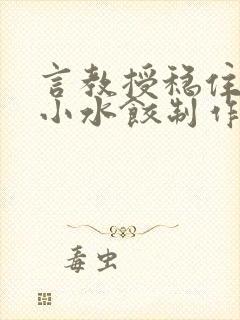 言教授稳住
小水饺制作
毒虫